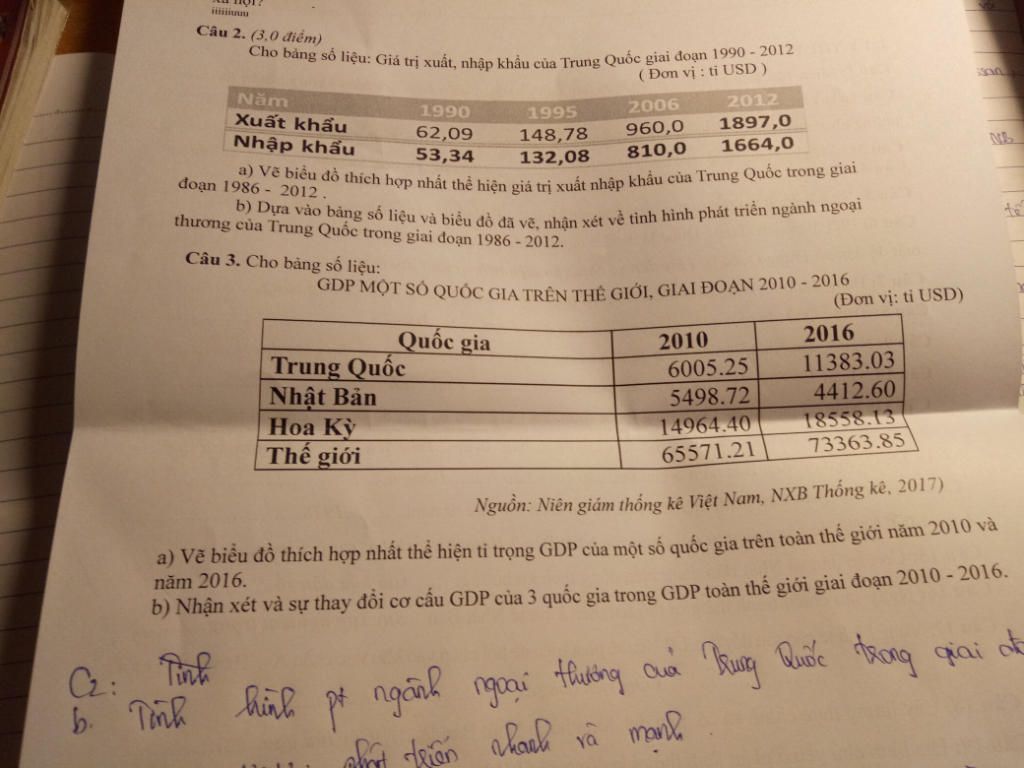 iiiiiiuuu
Câu 2. (3,0 điểm)
Cho bảng số liệu: Giá trị xuất, nhập khẩu của Trung Quốc giai đoạn 1990 - 2012
( Đơn vị : tỉ USD )
Năm 1990 1995 2006 2012
Xuất khẩu 62,09 148,78 960,0 1897,0
Nhập khẩu 53,34 132,08 810,0 1664,0
a) Vẽ biểu đồ thích hợp nhất thể hiện giá trị xuất nhập khẩu của Trung Quốc trong giai
đoạn 1986 - 2012 .
b) Dựa vào bảng số liệu và biểu đồ đã vẽ, nhận xét về tình hình phát triển ngành ngoại
thương của Trung Quốc trong giai đoạn 1986 - 2012.
Câu 3. Cho bảng số liệu:
GDP MỘT SỐ QUỐC GIA TRÊN THẾ GIỚI, GIAI ĐOẠN 2010 - 2016
(Đơn vị: tỉ USD)
Quốc gia 2010 2016
Trung Quốc 6005.25 11383.03
Nhật Bản 5498.72 4412.60
Hoa Kỳ 14964.40 18558.13
Thế giới 65571.21 73363.85
Nguồn: Niên giám thống kê Việt Nam, NXB Thống kê, 2017)
a) Vẽ biểu đồ thích hợp nhất thể hiện tỉ trọng GDP của một số quốc gia trên toàn thế giới năm 2010 và
năm 2016.
b) Nhận xét và sự thay đổi cơ cấu GDP của 3 quốc gia trong GDP toàn thế giới giai đoạn 2010 - 2016.
C2: Tình
b. Tình hình pt ngành ngoại thương của Trung Quốc trong giai
phát triển nhanh và mạnh .